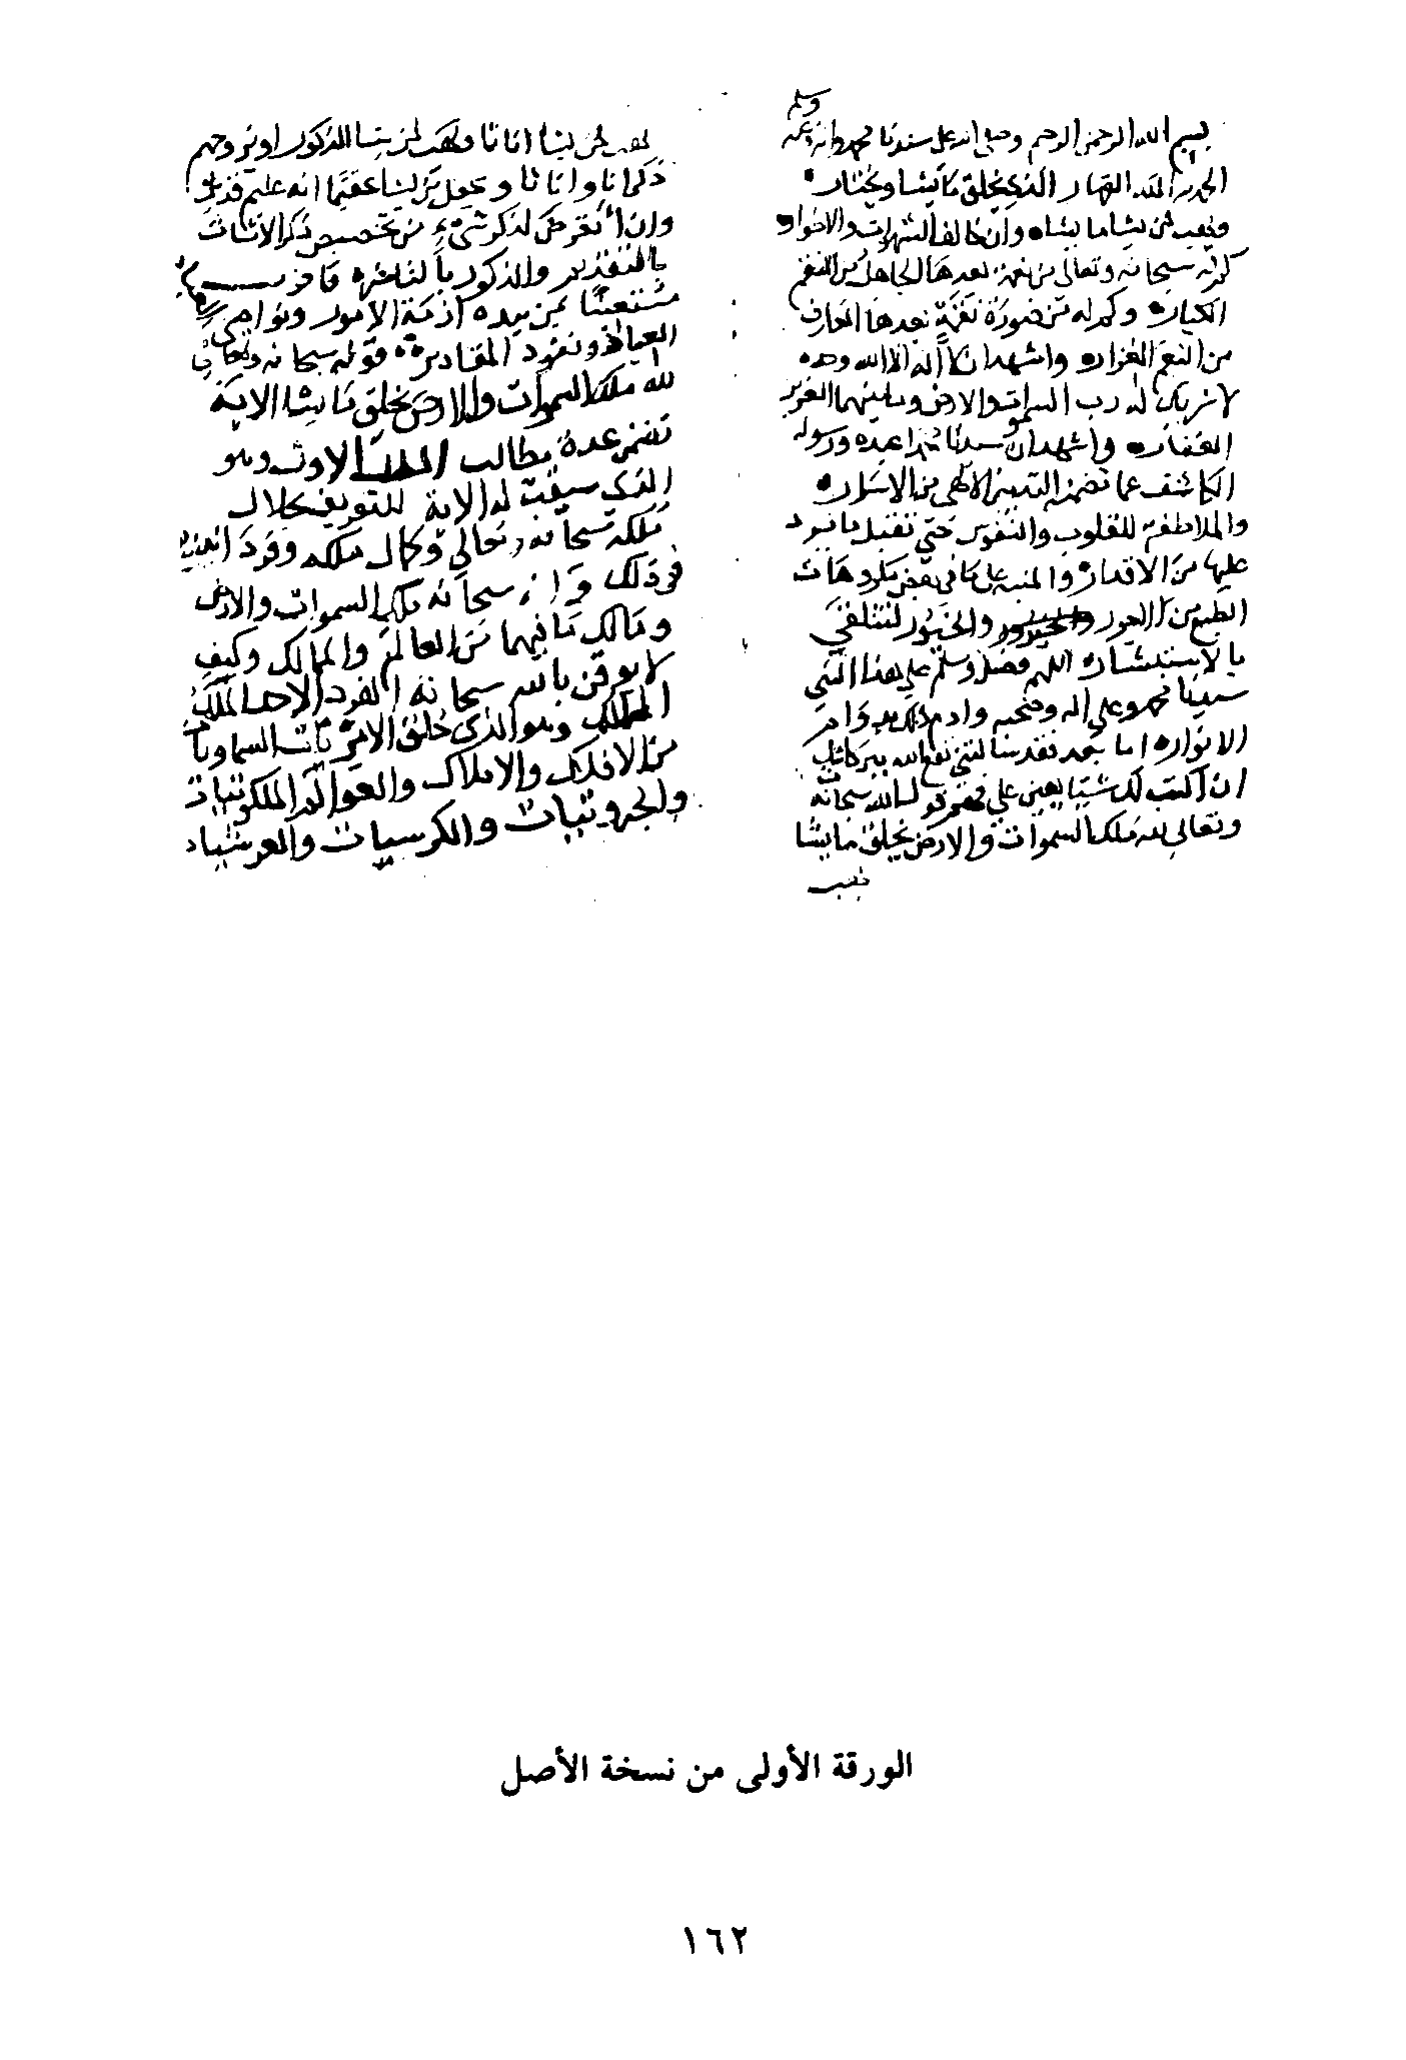 بسم الله الرحمن الرحيم وصلى الله على سيدنا محمد وآله وصحبه وسلم
الحمد لله الملك القهار الذي يخلق ما يشا ويختار
ويهب لمن يشا ما يشاه وان خالف الشهوات والاختوار
كم لله سبحانه وتعالى من نعمة يعدها الجاهل من النقم
الكباره وكم له من صورة نقمة يعدها العارف
من النعم الغزاره واشهد ان لا اله الا الله وحده
لا شريك له رب السموات والارض وما بينهما العزيز
الغفاره واشهد ان سيدنا محمدا عبده ورسوله
الكاشف عما تضمنه التدبير الالهي من الاسراره
والملاطف للقلوب والنفوس حتى تقبل ما يرد
عليها من الاقدار والمنبه على ما في بعض مكروهات
الطبع من الحور والحبور لتتلقى
بالاستبشاره اللهم فصل وسلم على هذا النبي
سيدنا محمد وعلى اله وصحبه وادم ذلك
الانواره اما بعد فقد سالتني نفع الله ببركاتك
ان اكتب لك شيئا يعين على فهم قول الله سبحانه
وتعالى لله ملك السموات والارض يخلق ما يشا
يهب
يهب لمن يشا اناثا ويهب لمن يشا الذكور او يزوجهم
ذكرانا واناثا ويجعل من يشا عقيما انه عليم قدير
وان أتعرض لذكر شيء من تخصيص ذكر الاناث
بالتقديم والذكور بالتاخيره فاقول
مستعينا بمن بيده ازمة الامور ونواصي
العباد ونفوذ المقادير قوله سبحانه وتعالى
لله ملك السموات والارض يخلق ما يشا الاية
تضمن عدة مطالب المطلب الاول وهو
الذي سيقت له الاية للتعريف بجلال
ملكه سبحانه وتعالى وكمال ملكه
في ذلك وانه سبحانه ملك السموات والارض
ومالك ما فيهما من العالم والممالك وكيف
لا يوقن بالله سبحانه الفرد الاحد الملك
المالك وهو الذي خلق السماويات
من الافلاك والاملاك والعوالم الملكوتيات
والجبروتيات والكرسيات والعرشيات
الورقة الأولى من نسخة الأصل
١٦٢